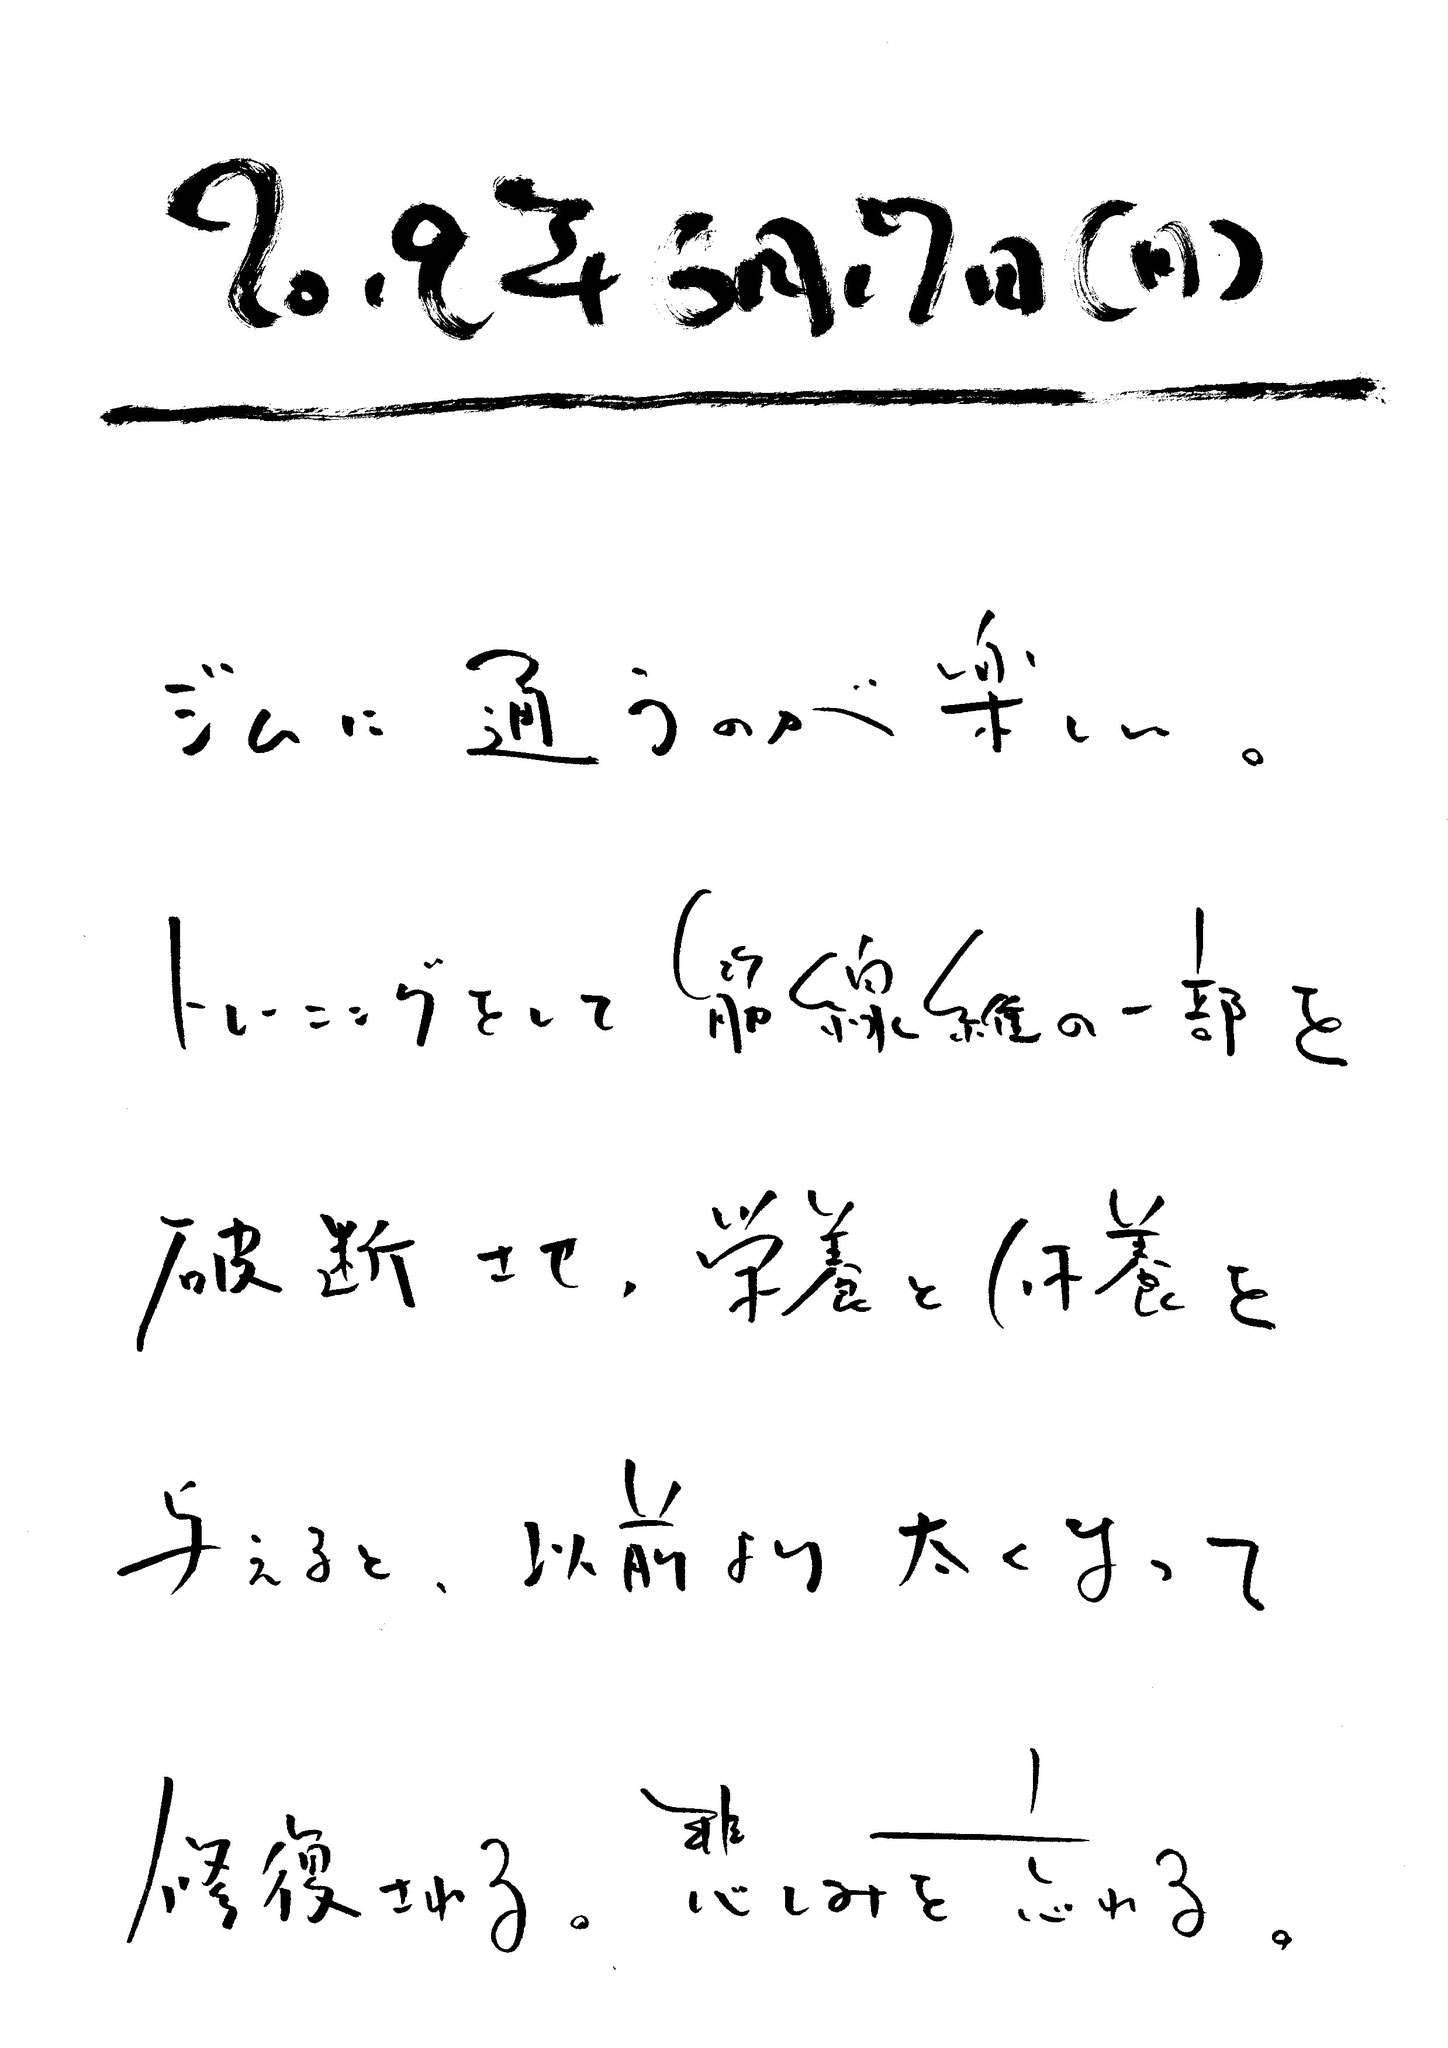 2019年6月17日(月)
ジムに通うのが楽しい。
トレーニングをして筋線維の一部を
破断させ、栄養と休養を
与えると、以前より太くなって
修復される。悲しみを忘れる。